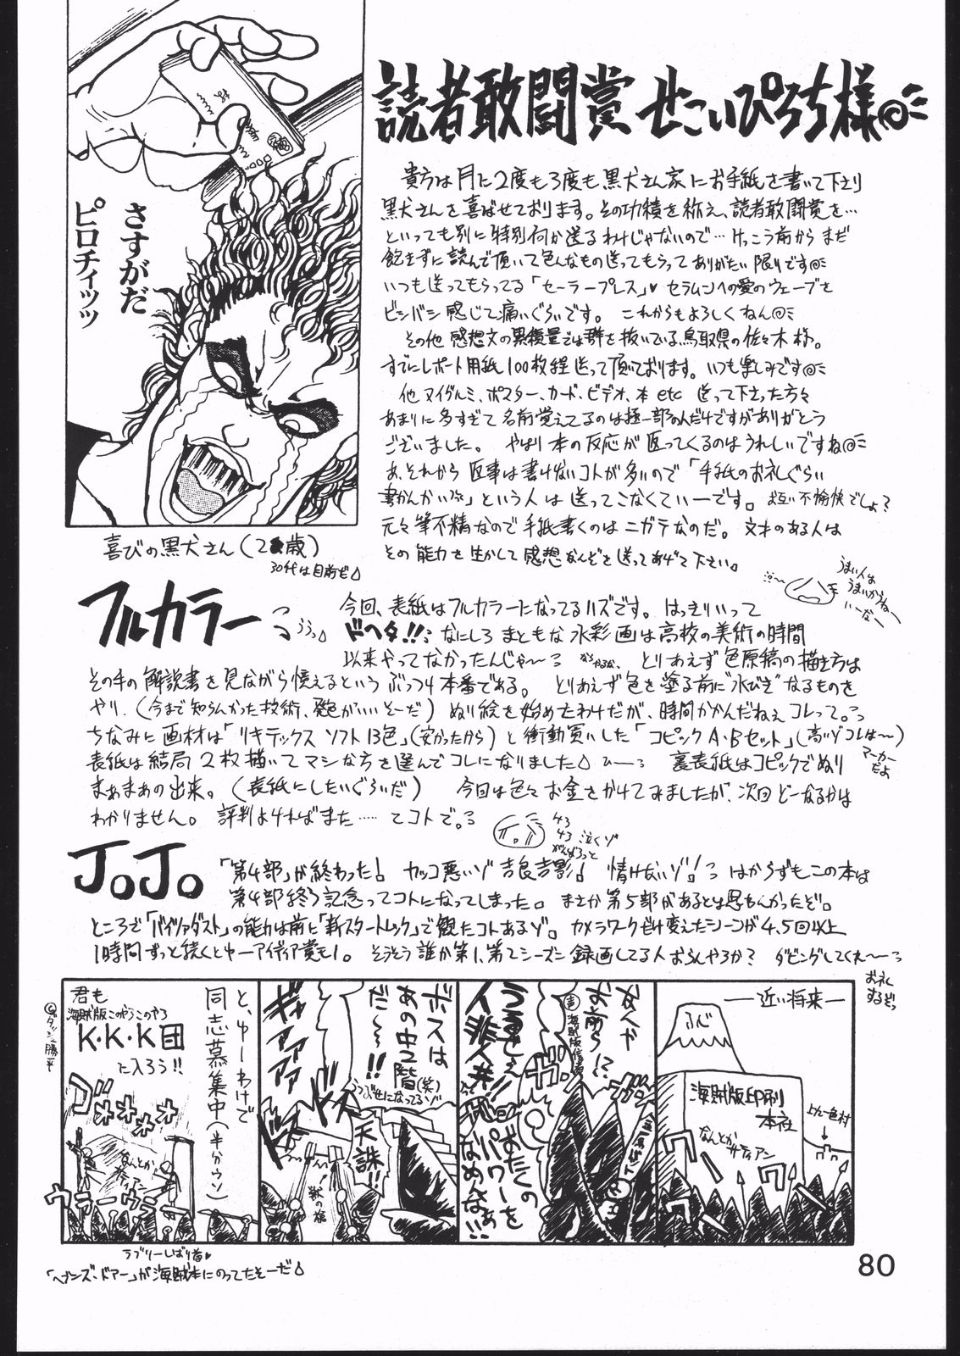 読者敢闘賞 せこいぴろち様
さすがだ
ピロチィッッ
喜びの黒犬さん(2 歳)
30代は目前だ
貴方は月に2度も3度も黒犬さん家にお手紙を書いて下さり
黒犬さんを喜ばせております。その功積を称え、読者敢闘賞を…
といっても別に特別何か送るわけじゃないので…けっこう前から まだ
飽きずに読んで頂いて色んなもの送ってもらってありがたい限りです
いつも送ってもらってる「セーラープレス」♥ セラムンへの愛のウェーブを
ビンバン感じて痛いぐらいです。 これからもよろしくねん
その他 感想文の 量では群を抜いている鳥取県の佐々木様。
すでにレポート用紙100枚程送って頂いております。いつも楽しみです
他 ヌイグルミ、ポスター、カード、ビデオ、本 etc 送って下さった方々
あまりに多すぎて名前覚えてるのは極一部なんだけですがありがとう
ございました。 やはり本の反応が返ってくるのはうれしいですね
あ、それから返事は書けないコトが多いので「手紙のお礼ぐらい
書かんかい」という人は送ってこなくていーです。お互い不愉快でしょ?
元々筆不精なので手紙書くのはニガテなのだ。文才のある人は
その能力を生かして感想なんぞを送ってあげて下さい。
うまい人は
うまいかねぇ〜
いーなー
フルカラー
今回、表紙はフルカラーになってるハズです。はっきりいって
ドヘタ!!: なにしろまともな水彩画は高校の美術の時間
以来やってなかったんじゃ〜 とりあえず色原稿の描き方は
その手の解説書を見ながら憶えるというぶっつけ本番である。 とりあえず色を塗る前に“水びき”なるものを
やり、(今まで知らんかった技術、発色がいいそーだ)ぬり絵を始めたわけだが、時間かかんだねぇコレって。
ちなみに画材は「リキテックス ソフト13色」(安かったから)と衝動買いした「コピックA・Bセット」(高いゾコレは〜)
マーカー
だよ
表紙は結局2枚描いてマシな方を選んでコレになりました 裏表紙はコピックでぬり
まぁまぁの出来。(表紙にしたいぐらいだ) 今回は色々お金をかけてみましたが、次回どーなるかは
わかりません。評判よければまた……てコトで。
泣くゾ
JoJo
「第4部」が終わった! カッコ悪いゾ吉良吉影! 情けないゾ! はからずもこの本は
第4部終了記念ってコトになってしまった。まさか第5部があるとは思わんかったぞ。
ところで「バイツァダスト」の能力は前に「新スタートレック」で観たコトあるゾ。カメラワークだけ変えたシーンが4、5回以上
1時間ずっと続くとゆーアイディア賞モノ。そうそう誰か第1、第2シーズン録画してる人おらんやろか? ダビングしてくれ〜
お礼
するぞっ
―近い将来―
ふじ
海賊版印刷
本社
なんとか
サティアン
上九一色村
なんや
お前ら!?
うるせぇ
人非人共!!
おたくの
パワーを
なめるなぁ!!
ボスは
あの中2階(笑)
だ〜!!
天誅!!
ギャァァァァ
と、ゆーわけで
同志募集中(半分ウソ)
君も
海賊版このやろうこのやろ
K・K・K団
に入ろう!!
ヴォオオオ
ウラーウラウラ
ラブリーしばり首♥
「ヘブンズ・ドアー」が海賊本にのってたそーだ
80